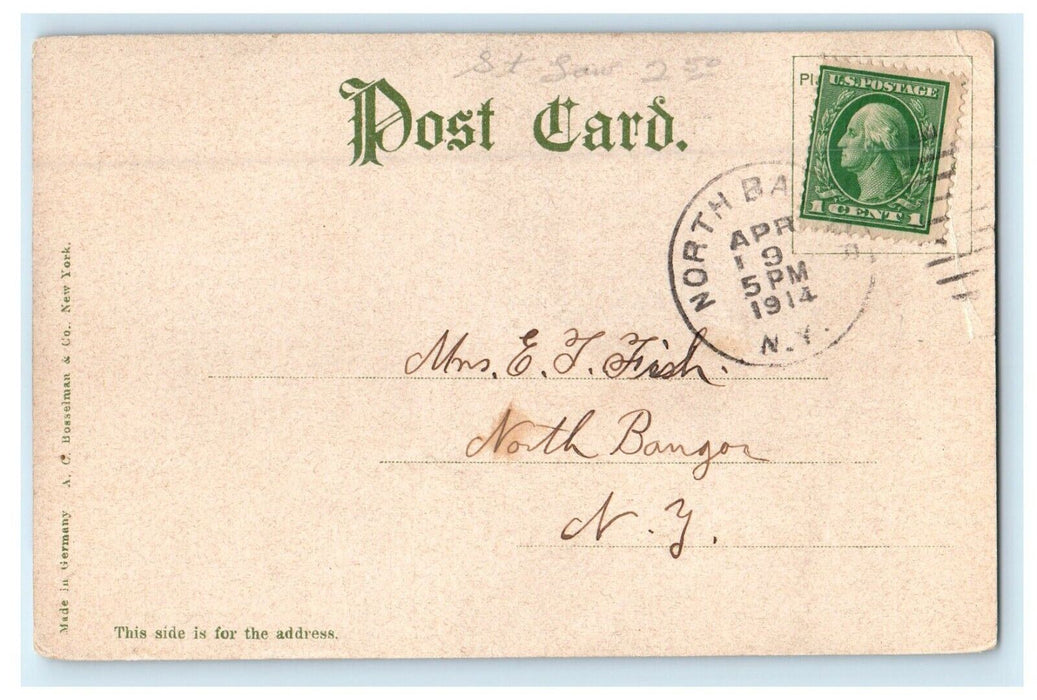 St Law 2 50
Post Card.
Pl
U.S. POSTAGE
1 CENT 1
NORTH BA
APR
19
5 PM
1914
N.Y.
Mrs. E. T. Fish.
North Bangor
N. Y.
Made in Germany A. C. Bosselman & Co., New York.
This side is for the address.